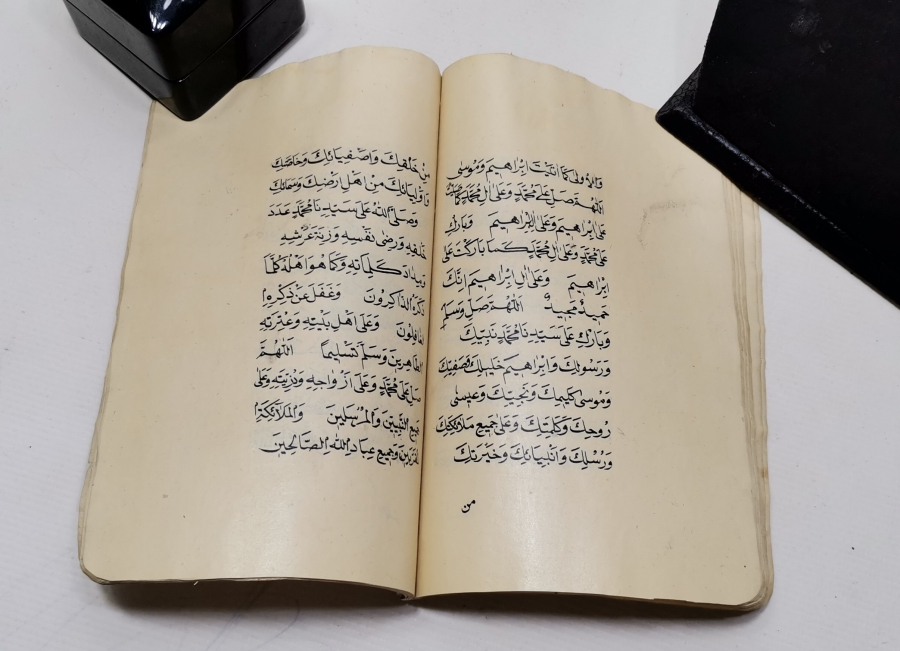 فالاولى كما اتيت ابراهيم وموسى
اللهم صل على محمد وعلى ال محمد كما صليت
على ابراهيم وعلى ال ابراهيم وبارك
على محمد وعلى ال محمد كما باركت على
ابراهيم وعلى ال ابراهيم انك
حميد مجيد اللهم صل وسلم
وبارك على سيدنا محمد نبيك
ورسولك وابراهيم خليلك وصفيك
وموسى كليمك ونجيك وعيسى
روحك وكلمتك وعلى جميع ملائكتك
ورسلك وانبيائك وخيرتك
من
من خلقك واصفيائك وخاصتك
واوليائك من اهل ارضك وسمائك
وصلى الله على سيدنا محمد عدد
خلقه ورضى نفسه وزنة عرشه
ومداد كلماته وكما هو اهله كلما
ذكره الذاكرون وغفل عن ذكره
الغافلون وعلى اهل بيته وعترته
الطاهرين وسلم تسليما اللهم
صل على محمد وعلى ازواجه وذريته وعلى
جميع النبيين والمرسلين والملائكة
المقربين وجميع عباد الله الصالحين